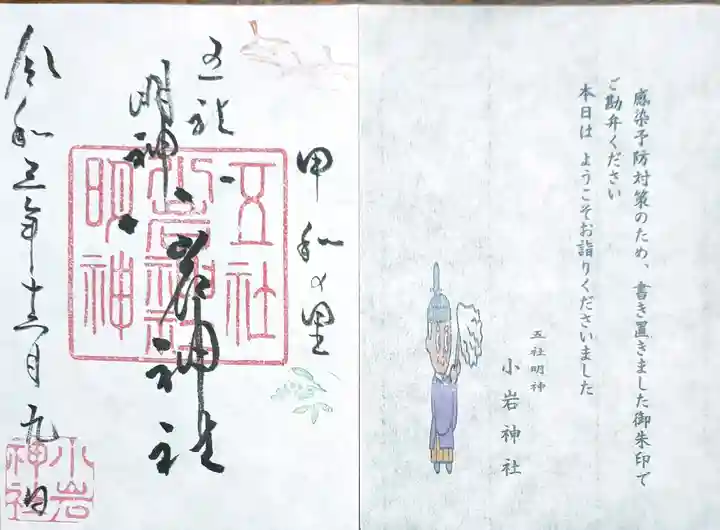 感染予防対策のため、書き置きました御朱印で
ご勘弁ください
本日は ようこそお詣りくださいました
五社明神
小岩神社
甲和の里
五社
明神
小岩神社
神社
五社
小岩神社
明神
令和三年十二月九日
小岩
神社